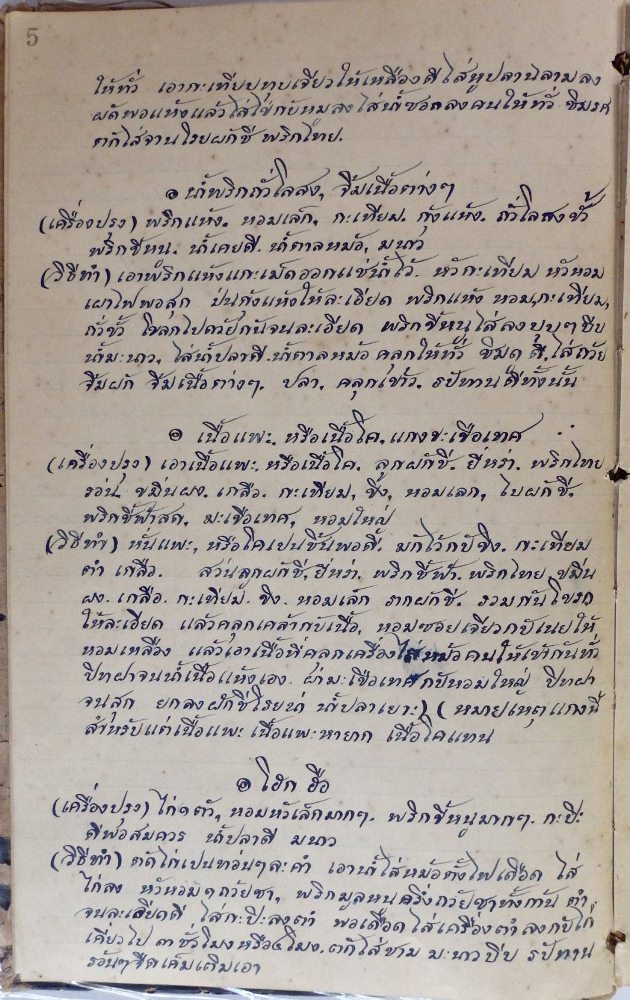 5
ให้ทั่ว เอากะเทียบทุบเจียวให้เหลืองดีใส่หูปลานลามลง
ผัดพอแห้งแล้วใส่ไข่กับหมูลงใส่น้ำซอกลงคนให้ทั่ว ชิมรศ
ตักใส่จานโรยผักชี พริกไทย.
๏ น้ำพริกถั่วโลสง, จิ้มเนื้อต่างๆ
(เครื่องปรุง) พริกแห้ง. หอมเล็ก, กะเทียม. กุ้งแห้ง. ถั่วโลสงขั้ว
พริกขี้หนู. น้ำเคยดี. น้ำตาลหม้อ, มะนาว
(วิธีทำ) เอาพริกแห้งแกะเม็ดออกแช่น้ำไว้. หัวกะเทียม หัวหอม
เผาไฟพอสุก ป่นกุ้งแห้งให้ละเอียด พริกแห้ง หอม,กะเทียม,
ถั่วขั้ว โขลกไปด้วยกันจนละเอียด พริกขี้หนูใส่ลงบุบๆ บีบ
น้ำมะนาว, ใส่น้ำปลาดี. น้ำตาลหม้อ คลุกให้ทั่ว ชิมดู ดี. ใส่ถ้วย
จิ้มผัก จิ้มเนื้อต่างๆ. ปลา. คลุกเข้าว. รับทานดีทั้งนั้น
๏ เนื้อแพะ. หรือเนื้อโค. แกงมะเขือเทศ
(เครื่องปรุง) เอาเนื้อแพะ. หรือเนื้อโค. ลูกผักชี. ยี่หร่า. พริกไทย
ร่อน. ขมิ้นผง. เกลือ. กะเทียม, ขิง, หอมเลก, ใบผักชี.
พริกชี้ฟ้าสด, มะเขือเทศ, หอมใหญ่
(วิธีทำ) หั่นแพะ, หรือโคเปนชิ้นพอดี. มักไว้กับขิง. กะเทียม
ตำ เกลือ. ส่วนลูกผักชี, ยี่หร่า. พริกชี้ฟ้า. พริกไทย ขมิ้น
ผง. เกลือ. กะเทียม. ขิง. หอมเล็ก รากผักชี. รวมกันโขรก
ให้ละเอียด แล้วคลุกเคล้ากับเนื้อ, หอมซอยเจียวกับเนยให้
หอมเหลือง แล้วเอาเนื้อที่คลุกเครื่องใส่หม้อคนให้เข้ากันทั่ว
ปิดฝาจนน้ำเนื้อแห้งเอง. ผ่ามะเขือเทศกับหอมใหญ่ ปิดฝา
จนสุก ยกลงผักชีโรยน่า น้ำปลาเยาะ) (หมายเหตุแกงนี้
สำหรับแต่เนื้อแพะ เนื้อแพะหายาก เนื้อโคแทน
๏ โฮก ฮือ
(เครื่องปรุง) ไก่๑ตัว, หอมหัวเล็กมากๆ. พริกขี้หนูมากๆ. กะปิ
ดีพอสมควร น้ำปลาดี มะนาว
(วิธีทำ) ตัดไก่เปนท่อนๆละคำ เอาน้ำใส่หม้อตั้งไฟเดือด ใส่
ไก่ลง หัวหอม๑ถ้วยชา, พริกมูลหนูครึ่งถ้วยชาทั้งก้าน ตำ
จนละเอียดดี ใส่กะปิลงตำ พอเดือดใส่เครื่องตำลงกับไก่
เคี่ยวไป ๓ ชั่วโมงหรือ๔โมง. ตักใส่ชาม มะนาวบีบ รับทาน
ร้อนๆจืดเค็มเติมเอา